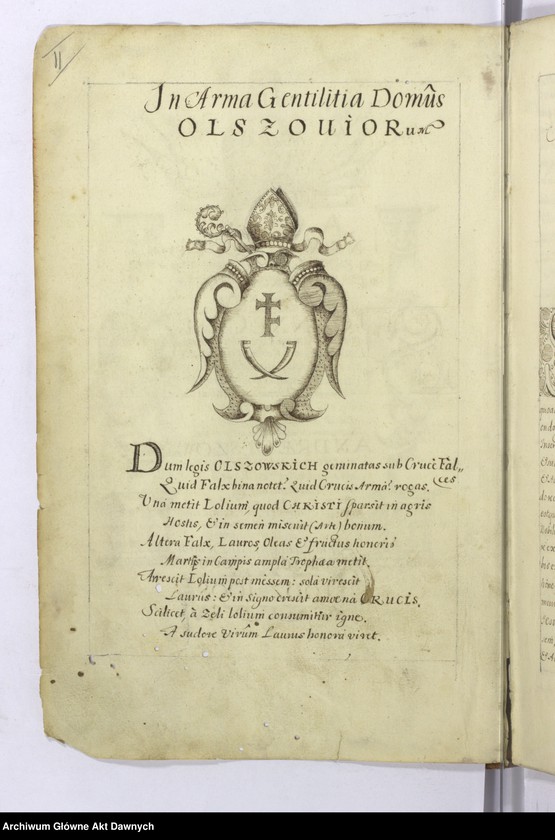 11
In Arma Gentilitia Domûs
OLSZOVIORum
Dum legis OLSZOWSKICH geminatas sub Cruce Falces
Quid Falx bina notet? Quid Crucis Arma? rogas.
Una metit Lolium, quod CHRISTI sparsit in agris
Hostis, & in semen miscuit (Arte) bonum.
Altera Falx, Lauros, Oleas & fructus honoris
Martis in Campis ampla Trophæa metit.
Arescit Lolium post messem: sola virescit
Laurus: & in Signo crescit amœna CRUCIS.
Scilicet, à Zeli lolium consumitur igne.
A sudore Virûm Laurus honora viret.
Archiwum Główne Akt Dawnych